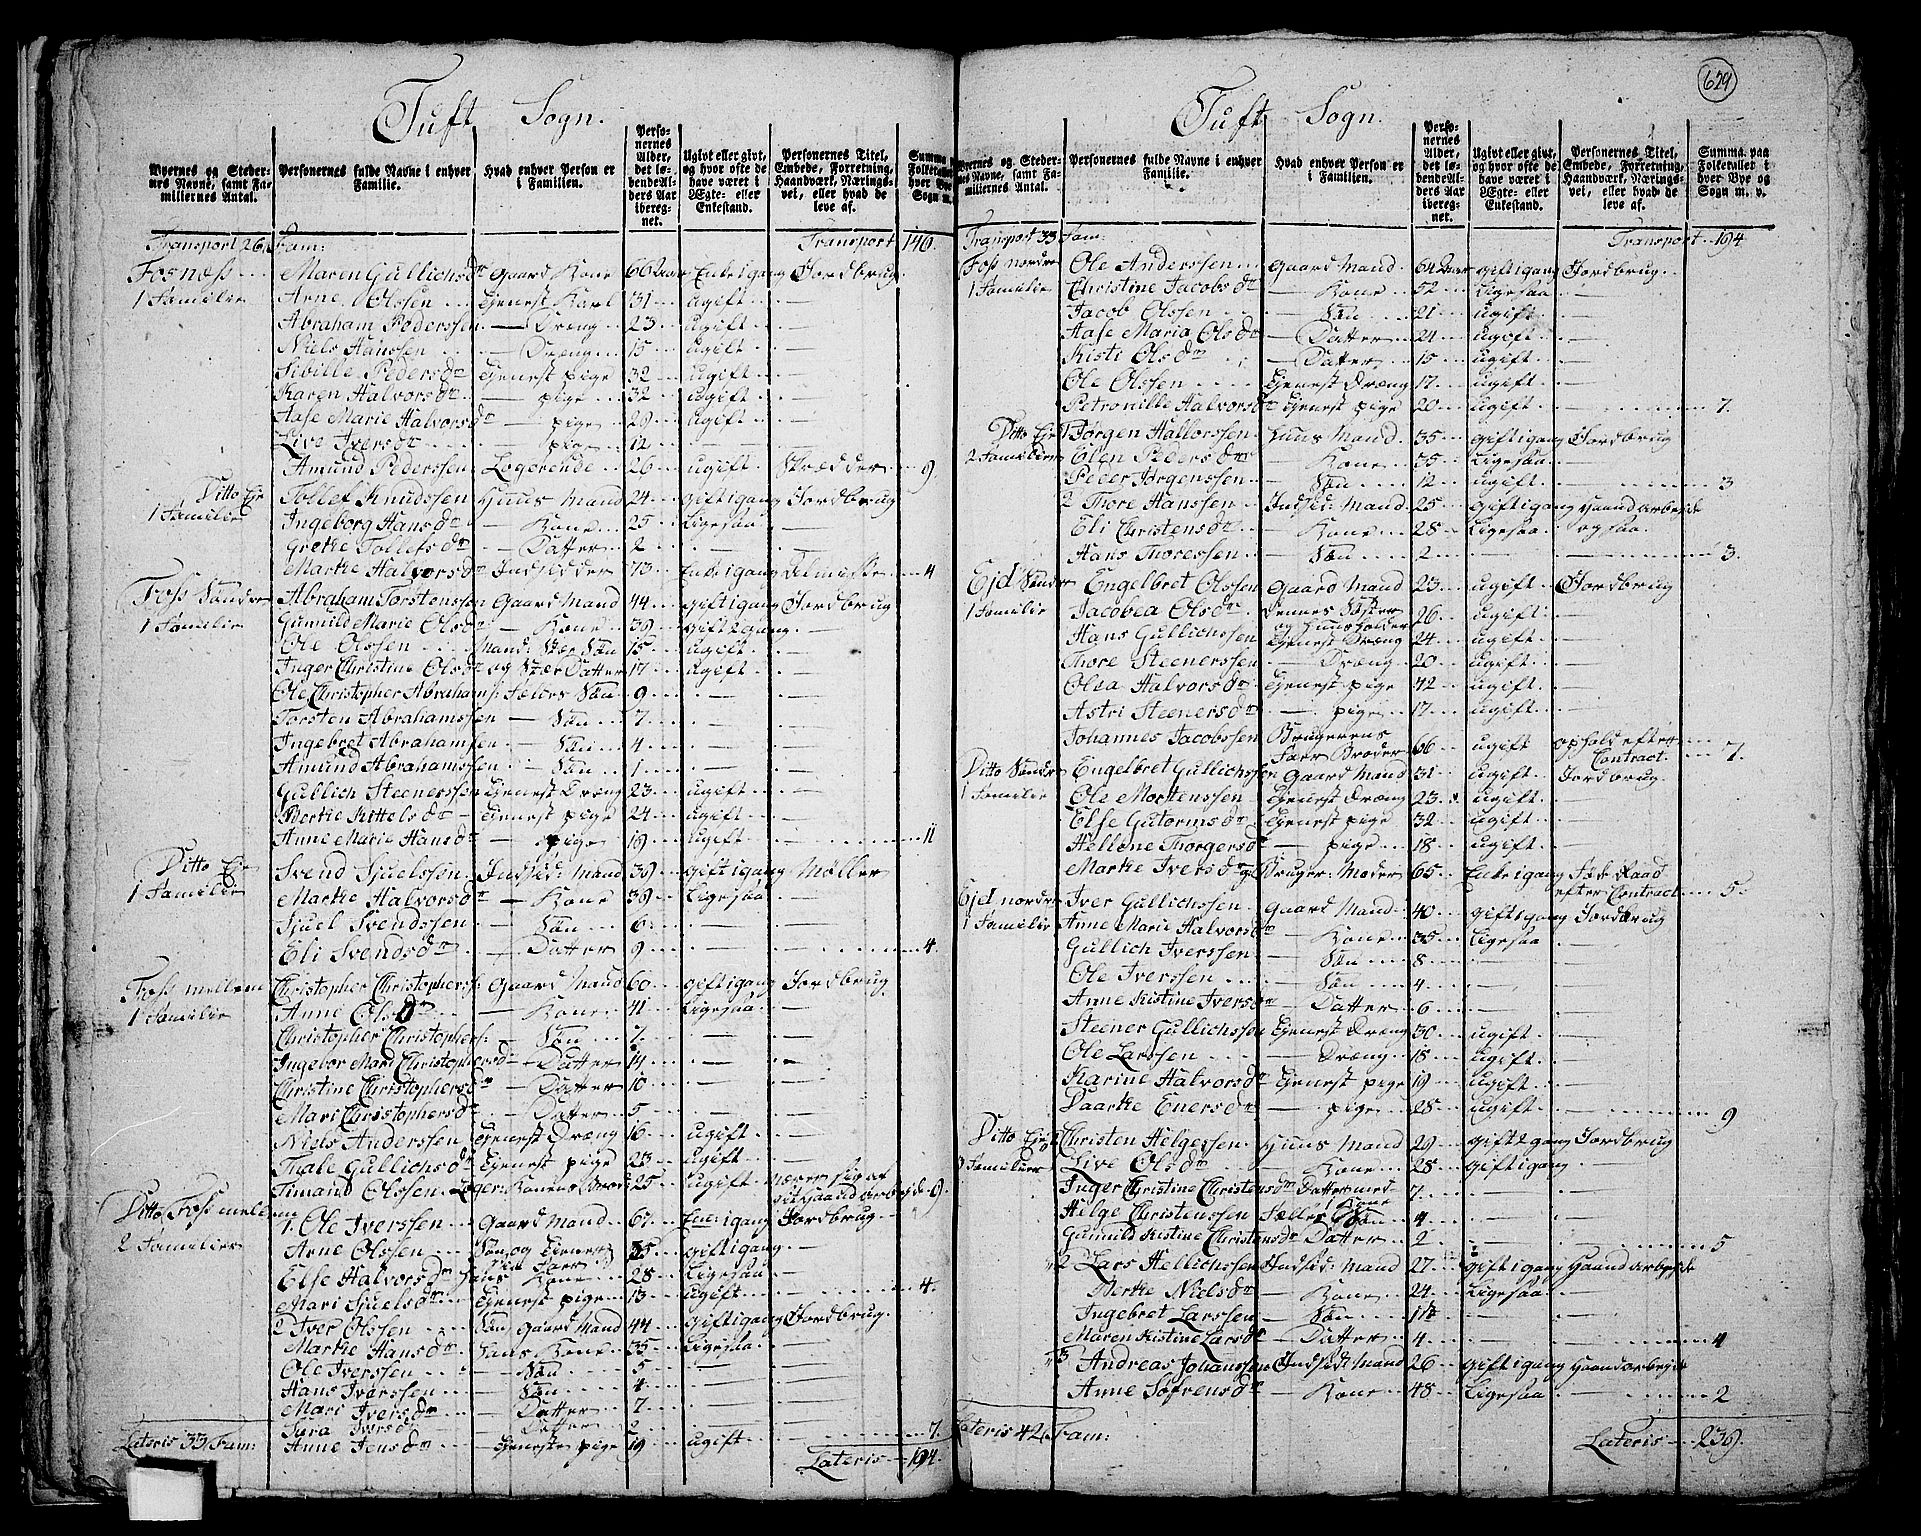 Tuft Sogn.
Byernes og Stedernes Navne, samt Familiernes Antal.
Personernes fulde Navne i enhver Familie.
Hvad enhver Person er i Familien.
Personernes Alder, det løbende Alders Aar iberegnet.
Ugivt eller givt, og hvor ofte de have været i Egte- eller Enkestand.
Personernes Titel, Embede, Forretning, Haandværk, Næringsvei, eller hvad de leve af.
Summa paa Folketallet i hver Bye og Sogn m. v.
Transport 26 Fam: Transport 140.
Fosnæss Maren Gullichsdr Gaard Kone 66 Aar Enke 1 gang Jordbrug
1 Familie Arne Olssen Tienest Karl 31 ugift —
Abraham Pederssen — Dreng 23 ugift —
Niels Hanssen — Dreng 15 ugift —
Sibille Pedersdr Tienest pige 32 ugift —
Karen Halvorsdr — pige 32 ugift —
Aase Marie Halvorsdr — pige 29 ugift —
Live Iversdr — pige 12 — —
Amund Pederssen Logerende 26 ugift Skrædder 9.
Ditto Eje Tollef Knudssen Huus Mand 24 gift 1 gang Jordbrug
1 Familie Ingeborg Hansdr — Kone 25 Ligesaa —
Grethe Tollefsdr — Datter 2 — —
Marthe Halvorsdr Indsidder 73 Enke 1 gang Almisse 4
Foss Søndre Abraham Torstenssen Gaard Mand 44 gift 1 gang Jordbrug
1 Familie Gunnild Marie Olsdr — Kone 39 gift 2 gang —
Ole Olssen Mand: Stær Søn 15 ugift —
Inger Christine Olsdr og Stær Datter 17 ugift —
Ole Christopher Abrahams: Fælles Søn 9 — —
Torsten Abrahamssen — Søn 7 — —
Ingebret Abrahamssen — Søn 4 — —
Amund Abrahamssen — Søn 1 — —
Gullich Steenerssen Tienest Dreng 23 ugift —
Berthe Kittelsdr Tienest pige 24 ugift —
Anne Marie Hansdr — pige 19 ugift — 11
Ditto Eje Svend Sjuelssen Indsid: Mand 39 gift 1 gang Møller
1 Familie Marthe Halvorsdr — Kone 39 Ligesaa —
Sjuel Svendssen — Søn 6 — —
Eli Svendsdr — Datter 9 — 4.
Foss mellem Christopher Christophers: Gaard Mand 60 gift 1 gang Jordbrug
1 Familie Anne Olsdr — Kone 41 Ligesaa —
Christopher Christophers: — Søn 7 — —
Ingebor Mari Christophersdr — Datter 14 — —
Christine Christophersdr — Datter 10 — —
Mari Christophersdr — Datter 5 — —
Niels Anderssen Tienest Dreng 16 ugift —
Thale Gullichsdr Tienest pige 23 ugift —
Timand Olssen Loger: Konens Brod: 25 ugift nærer sig af Haand arbejde 9.
Ditto Foss mellem 1. Ole Iverssen Gaard Mand 67 Enke 1 gang Jordbrug
2 Familier Arne Olssen Søn og tiener sin Faer 35 gift 1 gang —
Else Halvorsdr hans Kone 28 Ligesaa —
Mari Sjuelsdr Tienest pige 13 ugift 4.
2 Iver Olssen Søn, Gaard Mand 44 gift 1 gang Jordbrug
Marthe Hansdr hans Kone 35 Ligesaa —
Ole Iverssen — Søn 5 — —
Hans Iverssen — Søn 4 — —
Mari Iversdr — Datter 7 — —
Sara Iversdr — Datter 2 — 7.
Lateris 33 Fam: Anne Jensdr Tieneste pige 19 ugift —
Lateris 194.
629
Tuft Sogn.
Byernes og Stedernes Navne, samt Familiernes Antal.
Personernes fulde Navne i enhver Familie.
Hvad enhver Person er i Familien.
Personernes Alder, det løbende Alders Aar iberegnet.
Ugivt eller givt, og hvor ofte de have været i Egte- eller Enkestand.
Personernes Titel, Embede, Forretning, Haandværk, Næringsvei, eller hvad de leve af.
Summa paa Folketallet i hver Bye og Sogn m. v.
Transport 33 Fam: Transport 194
Foss nordre Ole Anderssen Gaard Mand 64 Aar gift 1 gang Jordbrug
1 Familie Christine Jacobsdr — Kone 52 Ligesaa —
Jacob Olssen — Søn 21 ugift —
Aase Maria Olsdr — Datter 24 ugift —
Kisti Olsdr — Datter 15 ugift —
Ole Olssen Tienest Dreng 17 ugift —
Petronille Halvorsdr Tienest pige 20 ugift — 7.
Ditto Eje 1 Jørgen Hallorssen Huus Mand 35 gift 1 gang Jordbrug
2 Familier Elen Pedersdr — Kone 35 Ligesaa —
Peder Jørgenssen — Søn 12 ugift 3
2 Thore Hanssen Indsid: Mand 25 gift 1 gang Haand arbejde
Eli Christensdr — Kone 28 Ligesaa ogsaa
Hans Thoressen — Søn 2 — 3.
Ejd Søndre Engelbret Olssen Gaard Mand 23 ugift Jordbrug
1 Familie Jacobea Olsdr Hennes Søster og Huusholder 26 ugift —
Hans Gullichssen Tienest Dreng 24 ugift —
Thore Steenerssen — Dreng 20 ugift —
Olea Halvorsdr Tienest pige 42 ugift —
Astri Steenersdr — pige 17 ugift —
Johannes Jacobssen Brugerens Faer Broder 66 ugift ophold efter Contract 7.
Ditto Søndre Engelbret Gullichssen Gaard Mand 31 ugift Jordbrug
1 Familie Ole Mortenssen Tienest Dreng 23 ugift —
Else Gutormsdr Tienest pige 32 ugift —
Hellene Thorgersdr — pige 18 ugift —
Marthe Iversdr Bruger: Moder 65 Enke 1 gang Føde Raad efter Contract 5.
Ejd nordre Iver Gullichssen Gaard Mand 40 gift 1 gang Jordbrug
1 Familie Anne Marie Halvorsdr — Kone 35 Ligesaa —
Gullich Iverssen — Søn 8 — —
Ole Iverssen — Søn 4 — —
Anne Kistine Iversdr — Datter 6 — —
Steener Gullichssen Tienest Dreng 30 ugift —
Ole Larssen — Dreng 18 ugift —
Karine Halvorsdr Tienest pige 19 ugift —
Vaarke Enersdr — pige 28 ugift — 9
Ditto Eje Christen Helgessen Huus Mand 29 gift 2 gang Jordbrug
3 Familier Live Olsdr — Kone 28 gift 1 gang —
Inger Christine Christensdr Datter med 7 — —
Helge Christenssen Fælles Søn 4 — —
Gunnild Kistine Christensdr Datter 2 — 5
2 Lars Hellichssen Indsid: Mand 27 gift 1 gang Haand arbejde
Berthe Nielsdr — Kone 24 Ligesaa —
Ingebret Larssen — Søn — —
Maren Kistine Larsdr — Datter 4 — 4
3 Andreas Johanssen Indsid: Mand 26 gift 1 gang Haand arbejde
Anne Søfrensdr — Kone 48 Ligesaa — 2
Lateris 42 Fam: Lateris 239.